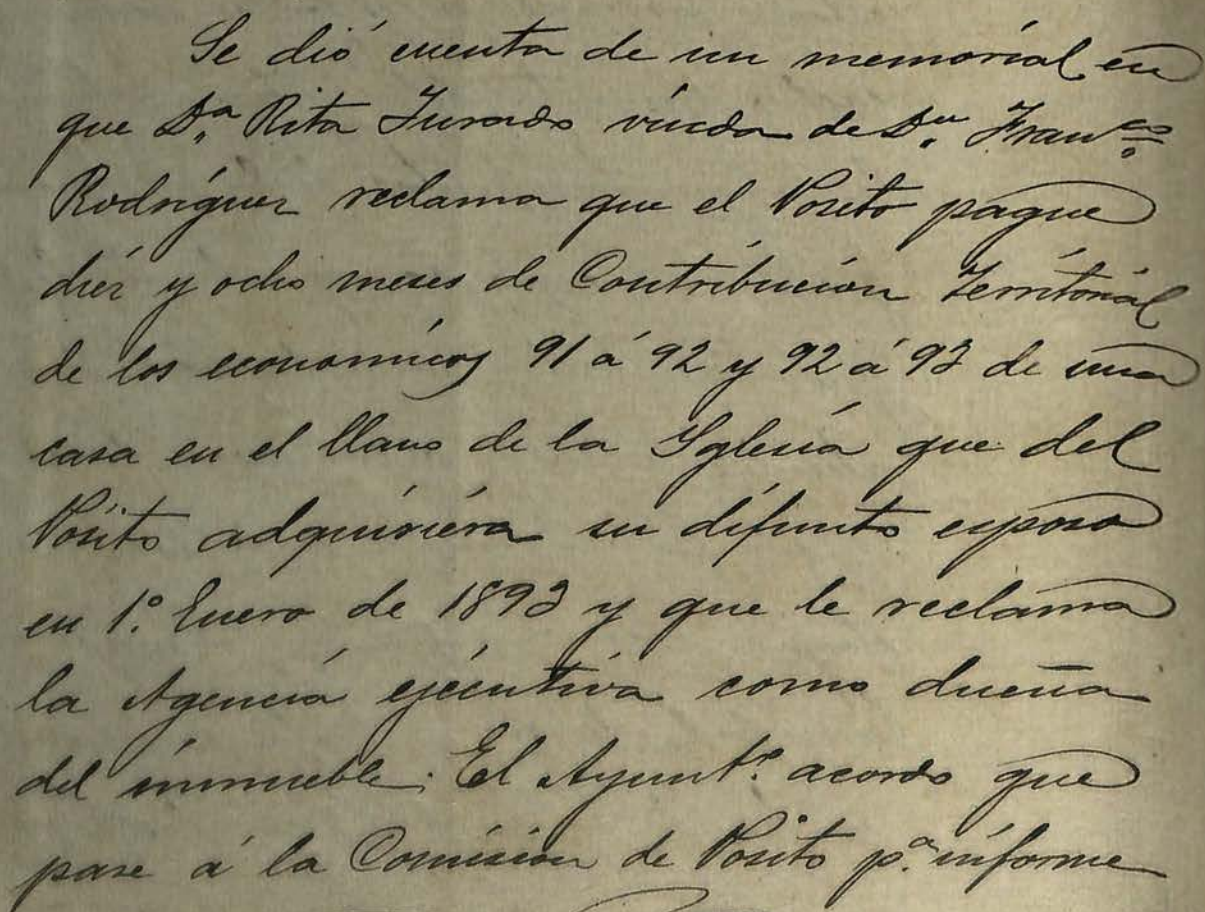 Se dió cuenta de un memorial en
que Dª Rita Jurado viuda de Dn Franco
Rodriguez reclama que el Posito pague
diez y ocho meses de Contribución Territorial
de los economicos 91 á 92 y 92 á 93 de una
casa en el llano de la Yglesia que del
Pósito adquiriera su difunto esposo
en 1º Enero de 1893 y que le reclama
la Agencia ejecutiva como dueña
del inmueble. El Ayuntº acordo que
pase á la Comisión de Posito pª informe